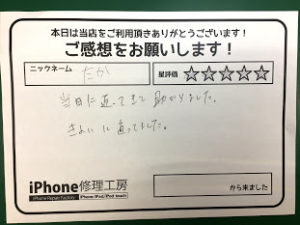 本日は当店をご利用頂きありがとうございます!
ご感想をお願いします!
ニックネーム たか 星評価 ☆☆☆☆☆
当日に直ってきて助かりました。
きれいに直ってました。
iPhone修理工房
iPhone Repair Factory iPhone/iPad/iPod touch
から来ました